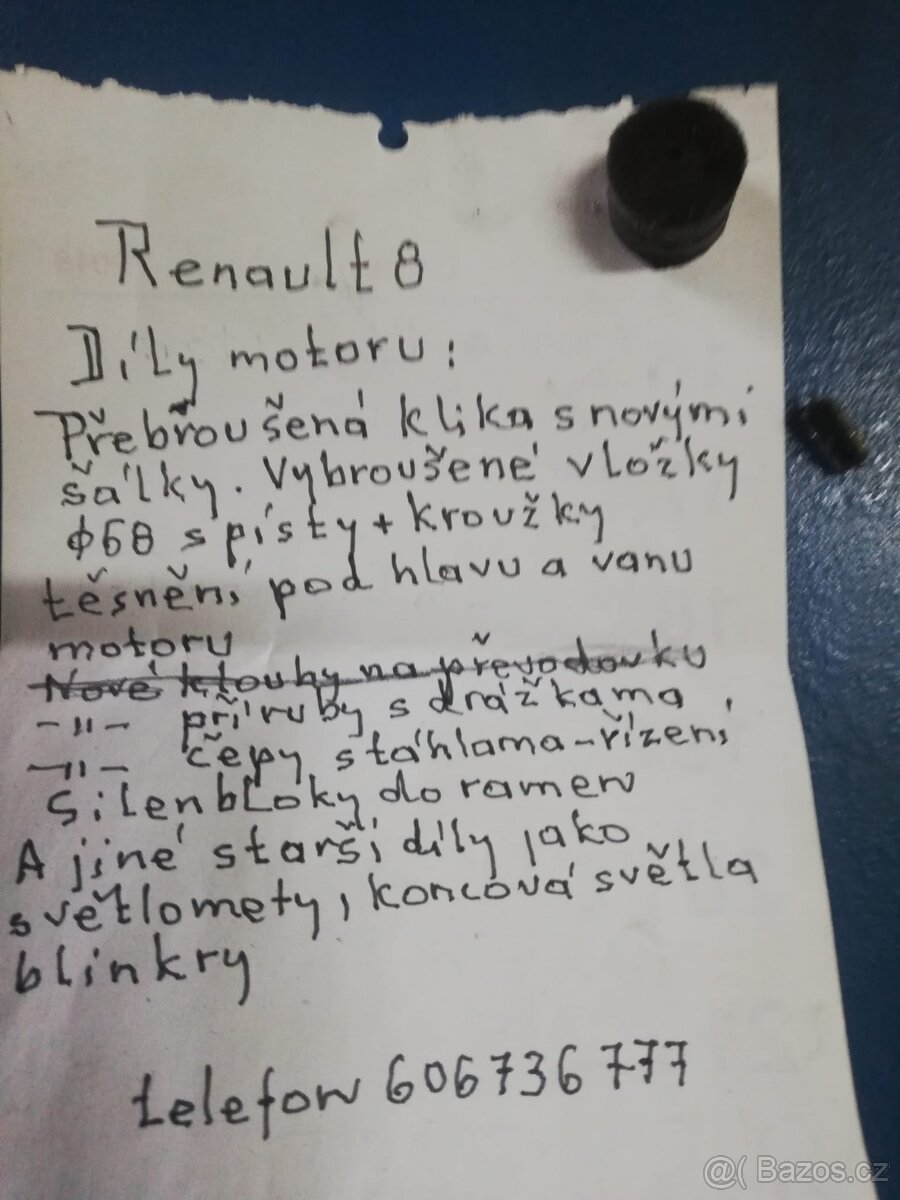 Renault 8
Díly motoru:
Přebroušená klika s novými
šálky. Vybroušené vložky
ϕ68 s písty + kroužky
těsnění pod hlavu a vanu
motoru
Nové klouby na převodovku
-11- příruby s drážkama
-11- čepy s táhlama-řízení
Silenbloky do ramen
A jiné starší díly jako
světlomety, koncová světla
blinkry
telefon 606736777
@( Bazos.cz